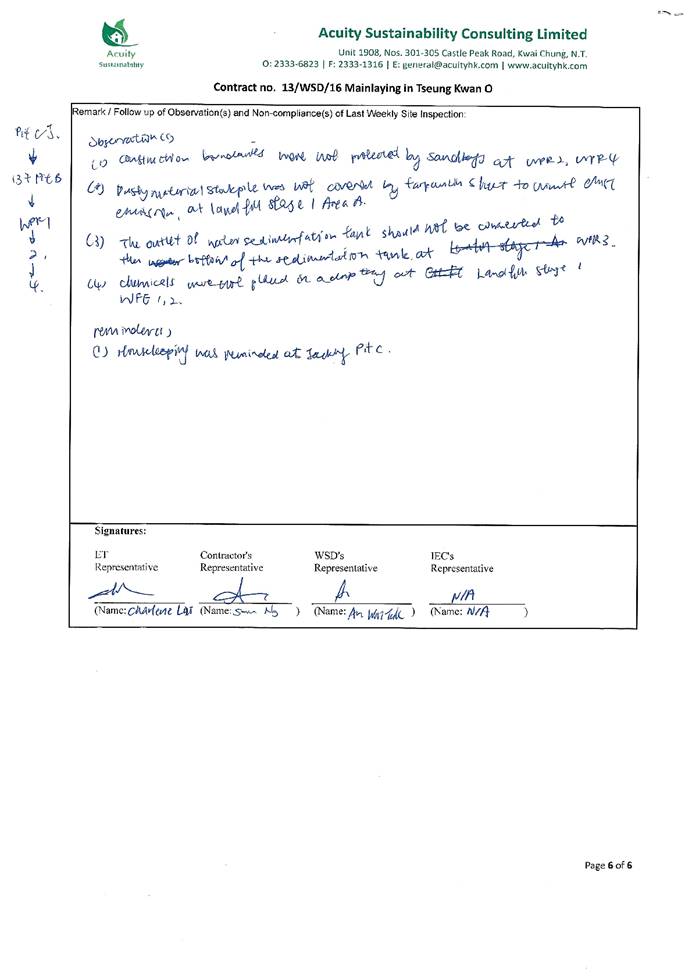 Acuity
Sustainability
Acuity Sustainability Consulting Limited
Unit 1908, Nos. 301-305 Castle Peak Road, Kwai Chung, N.T.
O: 2333-6823 | F: 2333-1316 | E: general@acuityhk.com | www.acuityhk.com
Contract no. 13/WSD/16 Mainlaying in Tseung Kwan O
Remark / Follow up of Observation(s) and Non-compliance(s) of Last Weekly Site Inspection:
Pit C/J.
↓
137 Pit B
↓
WPR1
↓
2.
↓
4.
Observation(s)
(1) construction boundaries were not protected by sandbags at WPR2, WPR4
(2) Dusty material stockpile was not covered by tarpaulin sheet to
emission, at landfill stage 1 Area A.
(3) The outlet of water sedimentation tank should not be connected to
the water bottom of the sedimentation tank at Landfill stage 1 A WPR3.
(4) chemicals were not placed in a drip tray at Landfill stage 1
WFG 1, 2.
reminder(s)
(1) Housekeeping was reminded at Jacking Pit C.
Signatures:
ET
Representative
Contractor's
Representative
WSD's
Representative
IEC's
Representative
N/A
(Name: Charlene Lai (Name: Sum Ng ) (Name: ) (Name: N/A )
Page 6 of 6